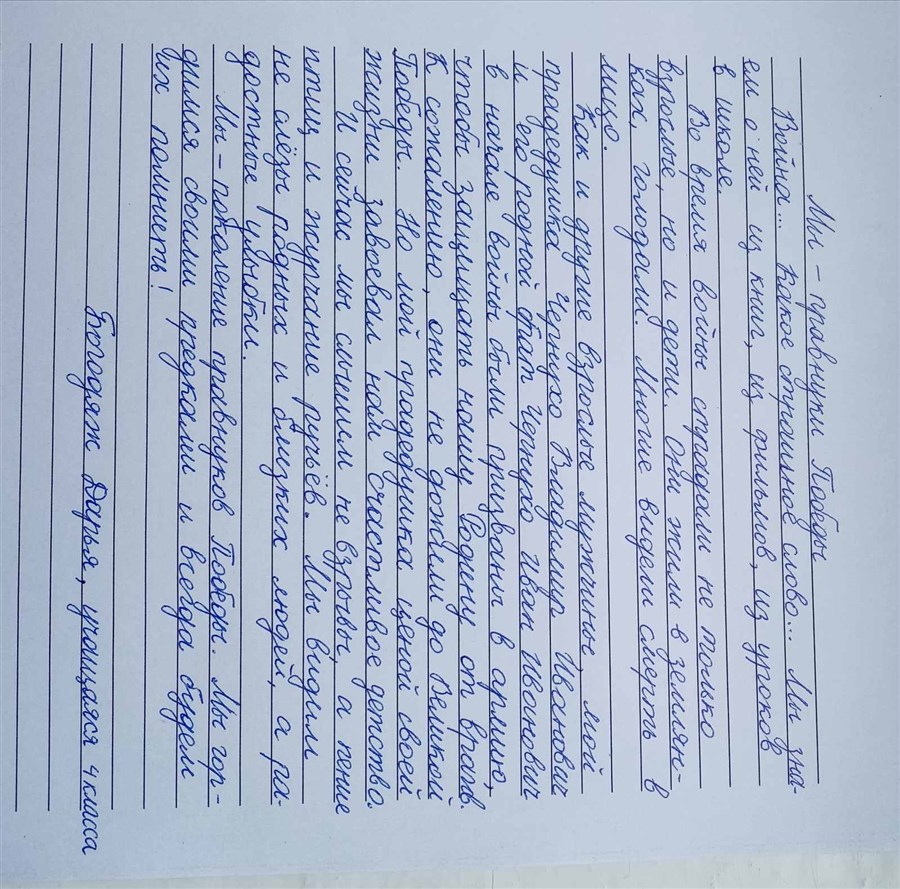 Мы - правнуки Победы
Война... Какое страшное слово... Мы зна-
ем о ней из книг, из фильмов, из уроков
в школе.
Во время войны страдали не только
взрослые, но и дети. Они жили в землян-
ках, голодали. Многие видели смерть в
лицо.
Как и другие взрослые мужчины, мой
прадедушка Чепухо Владимир Иванович
и его родной брат Чепухо Иван Иванович
в начале войны были призваны в армию,
чтобы защищать нашу Родину от врагов.
К сожалению, они не дожили до Великой
Победы. Но мой прадедушка ценой своей
жизни завоевал нам счастливое детство.
И сейчас мы слышим не взрывы, а пение
птиц и журчание ручьёв. Мы видим
не слёзы родных и близких людей, а ра-
достные улыбки.
Мы - поколение правнуков Победы. Мы гор-
димся своими предками и всегда будем
их помнить!
Богодяж Дарья, учащаяся 4 класса